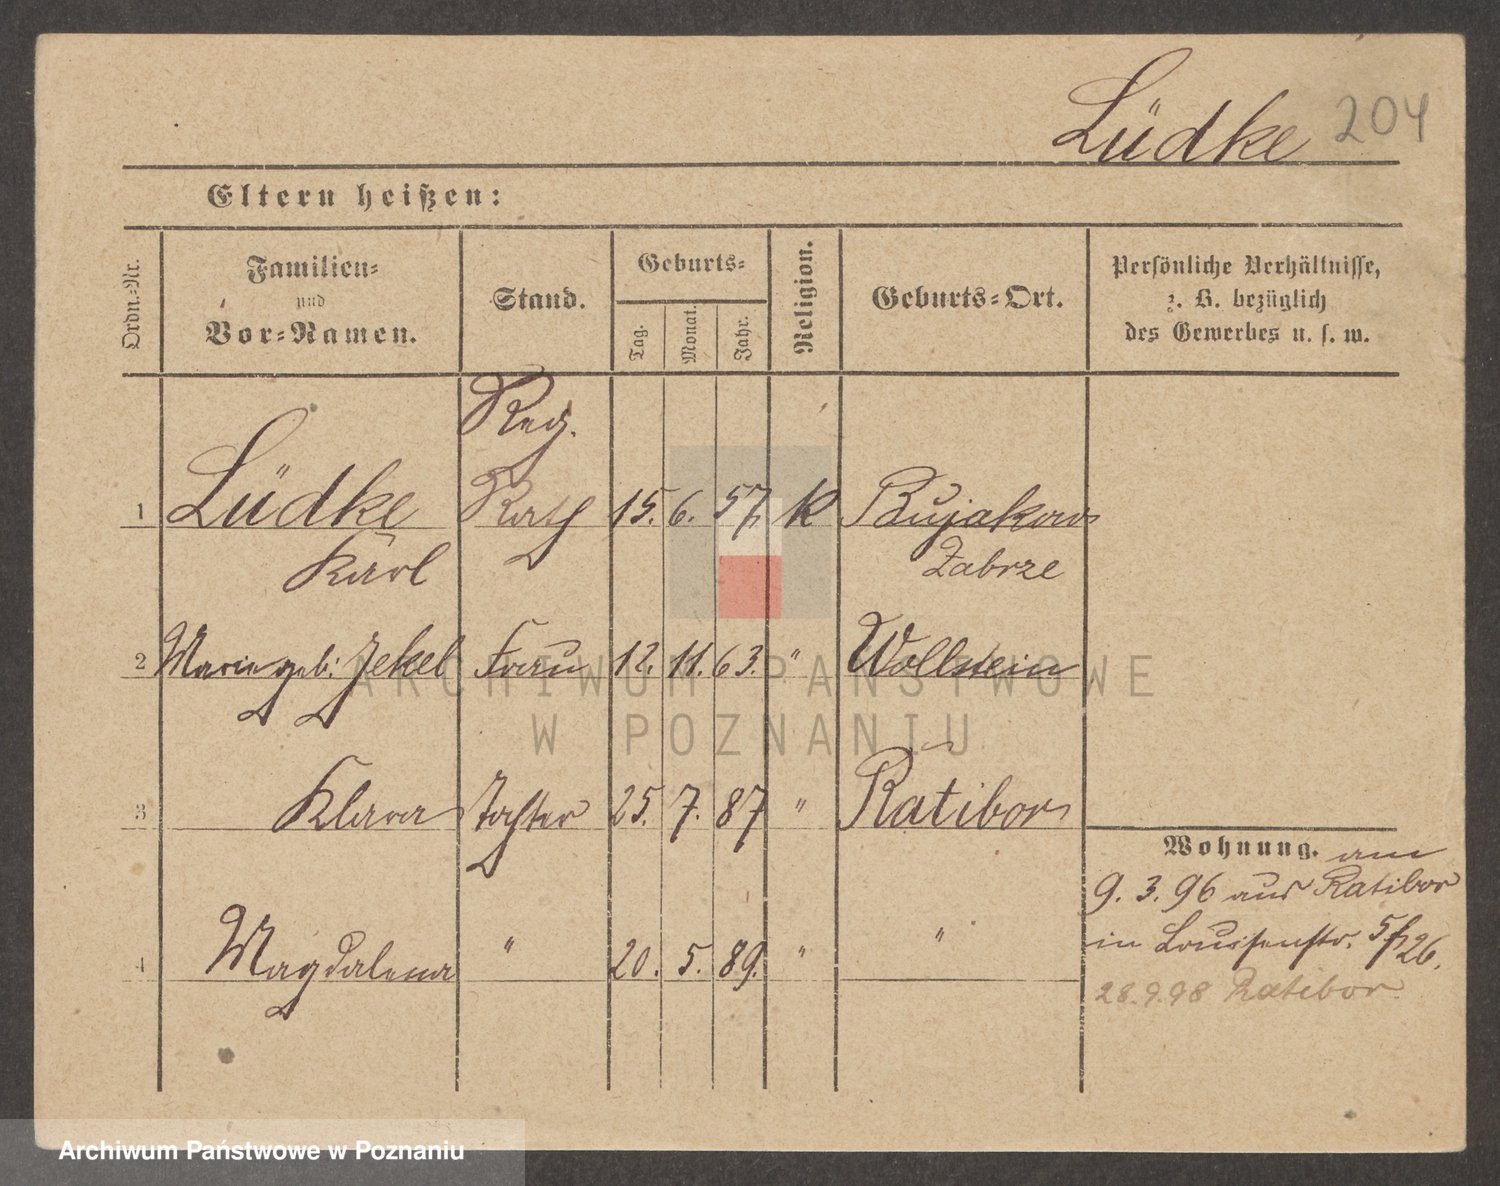 Lüdke 204
Eltern heißen:
Ordn.-Nr.
Familien-
und
Vor-Namen.
Stand.
Geburts-
Tag.
Monat.
Jahr.
Religion.
Geburts-Ort.
Persönliche Verhältnisse,
z. B. bezüglich
des Gewerbes u. s. w.
Reg.
1 Lüdke Rath 15. 6. 57 k Bujakow
Karl Zabrze
2 Marie geb: Jekel Frau 12. 11. 63. " Wollstein
3 Klara Tochter 25. 7. 87 " Ratibor
Wohnung. am
9. 3. 96 aus Ratibor
in Louisenstr.
4 Magdalena " 20. 5. 89. " "
28.9.98 Ratibor.
ARCHIWUM PAŃSTWOWE
W POZNANIU
Archiwum Państwowe w Poznaniu